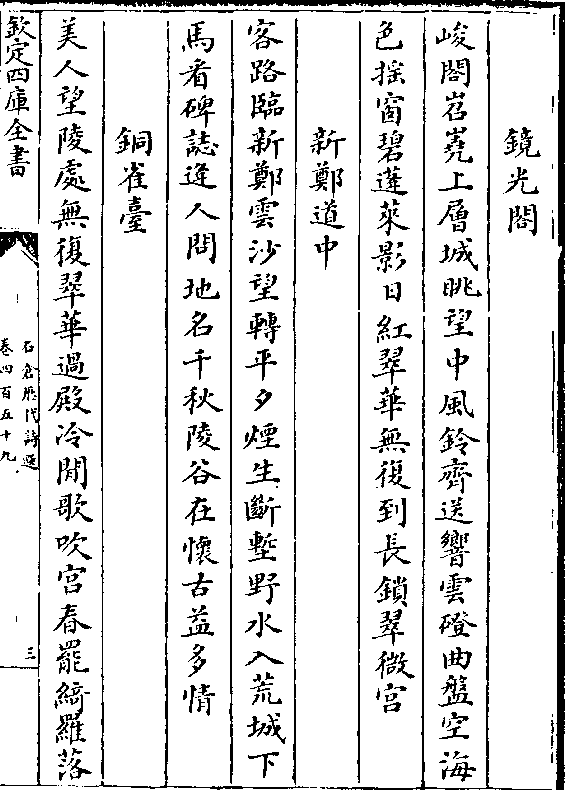 鏡光閣
峻閣岧嶤上層城眺望中風鈴齊送響雲磴曲盤空海
色揺窗碧蓬萊影日紅翠華無復到長鎖翠微宮
新鄭道中
客路臨新鄭雲沙望轉平夕煙生斷塹野水入荒城下
馬看碑誌逢人問地名千秋陵谷在懷古益多情
銅雀臺
美人望陵處無復翠華過殿冷閒歌吹宮春罷綺羅落
欽定四庫全書
石倉歷代詩選
卷四百五十九
三